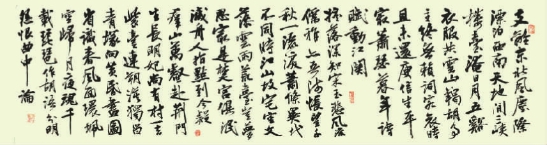 支離東北風塵際
漂泊西南天地間三峽
樓臺淹日月五谿
衣服共雲山羯胡事
主終無賴詞客哀時
且未還庾信生平
最蕭瑟暮年詩
賦動江關
搖落深知宋玉悲風流
儒雅亦吾師悵望千
秋一灑淚蕭條異代
不同時江山故宅空文
藻雲雨荒臺豈夢
思最是楚宮俱泯
滅舟人指點到今疑
群山萬壑赴荊門
生長明妃尚有村一去
紫臺連朔漠獨留
青塚向黃昏畫圖
省識春風面環珮
空歸月夜魂千
載琵琶作胡語分明
怨恨曲中論